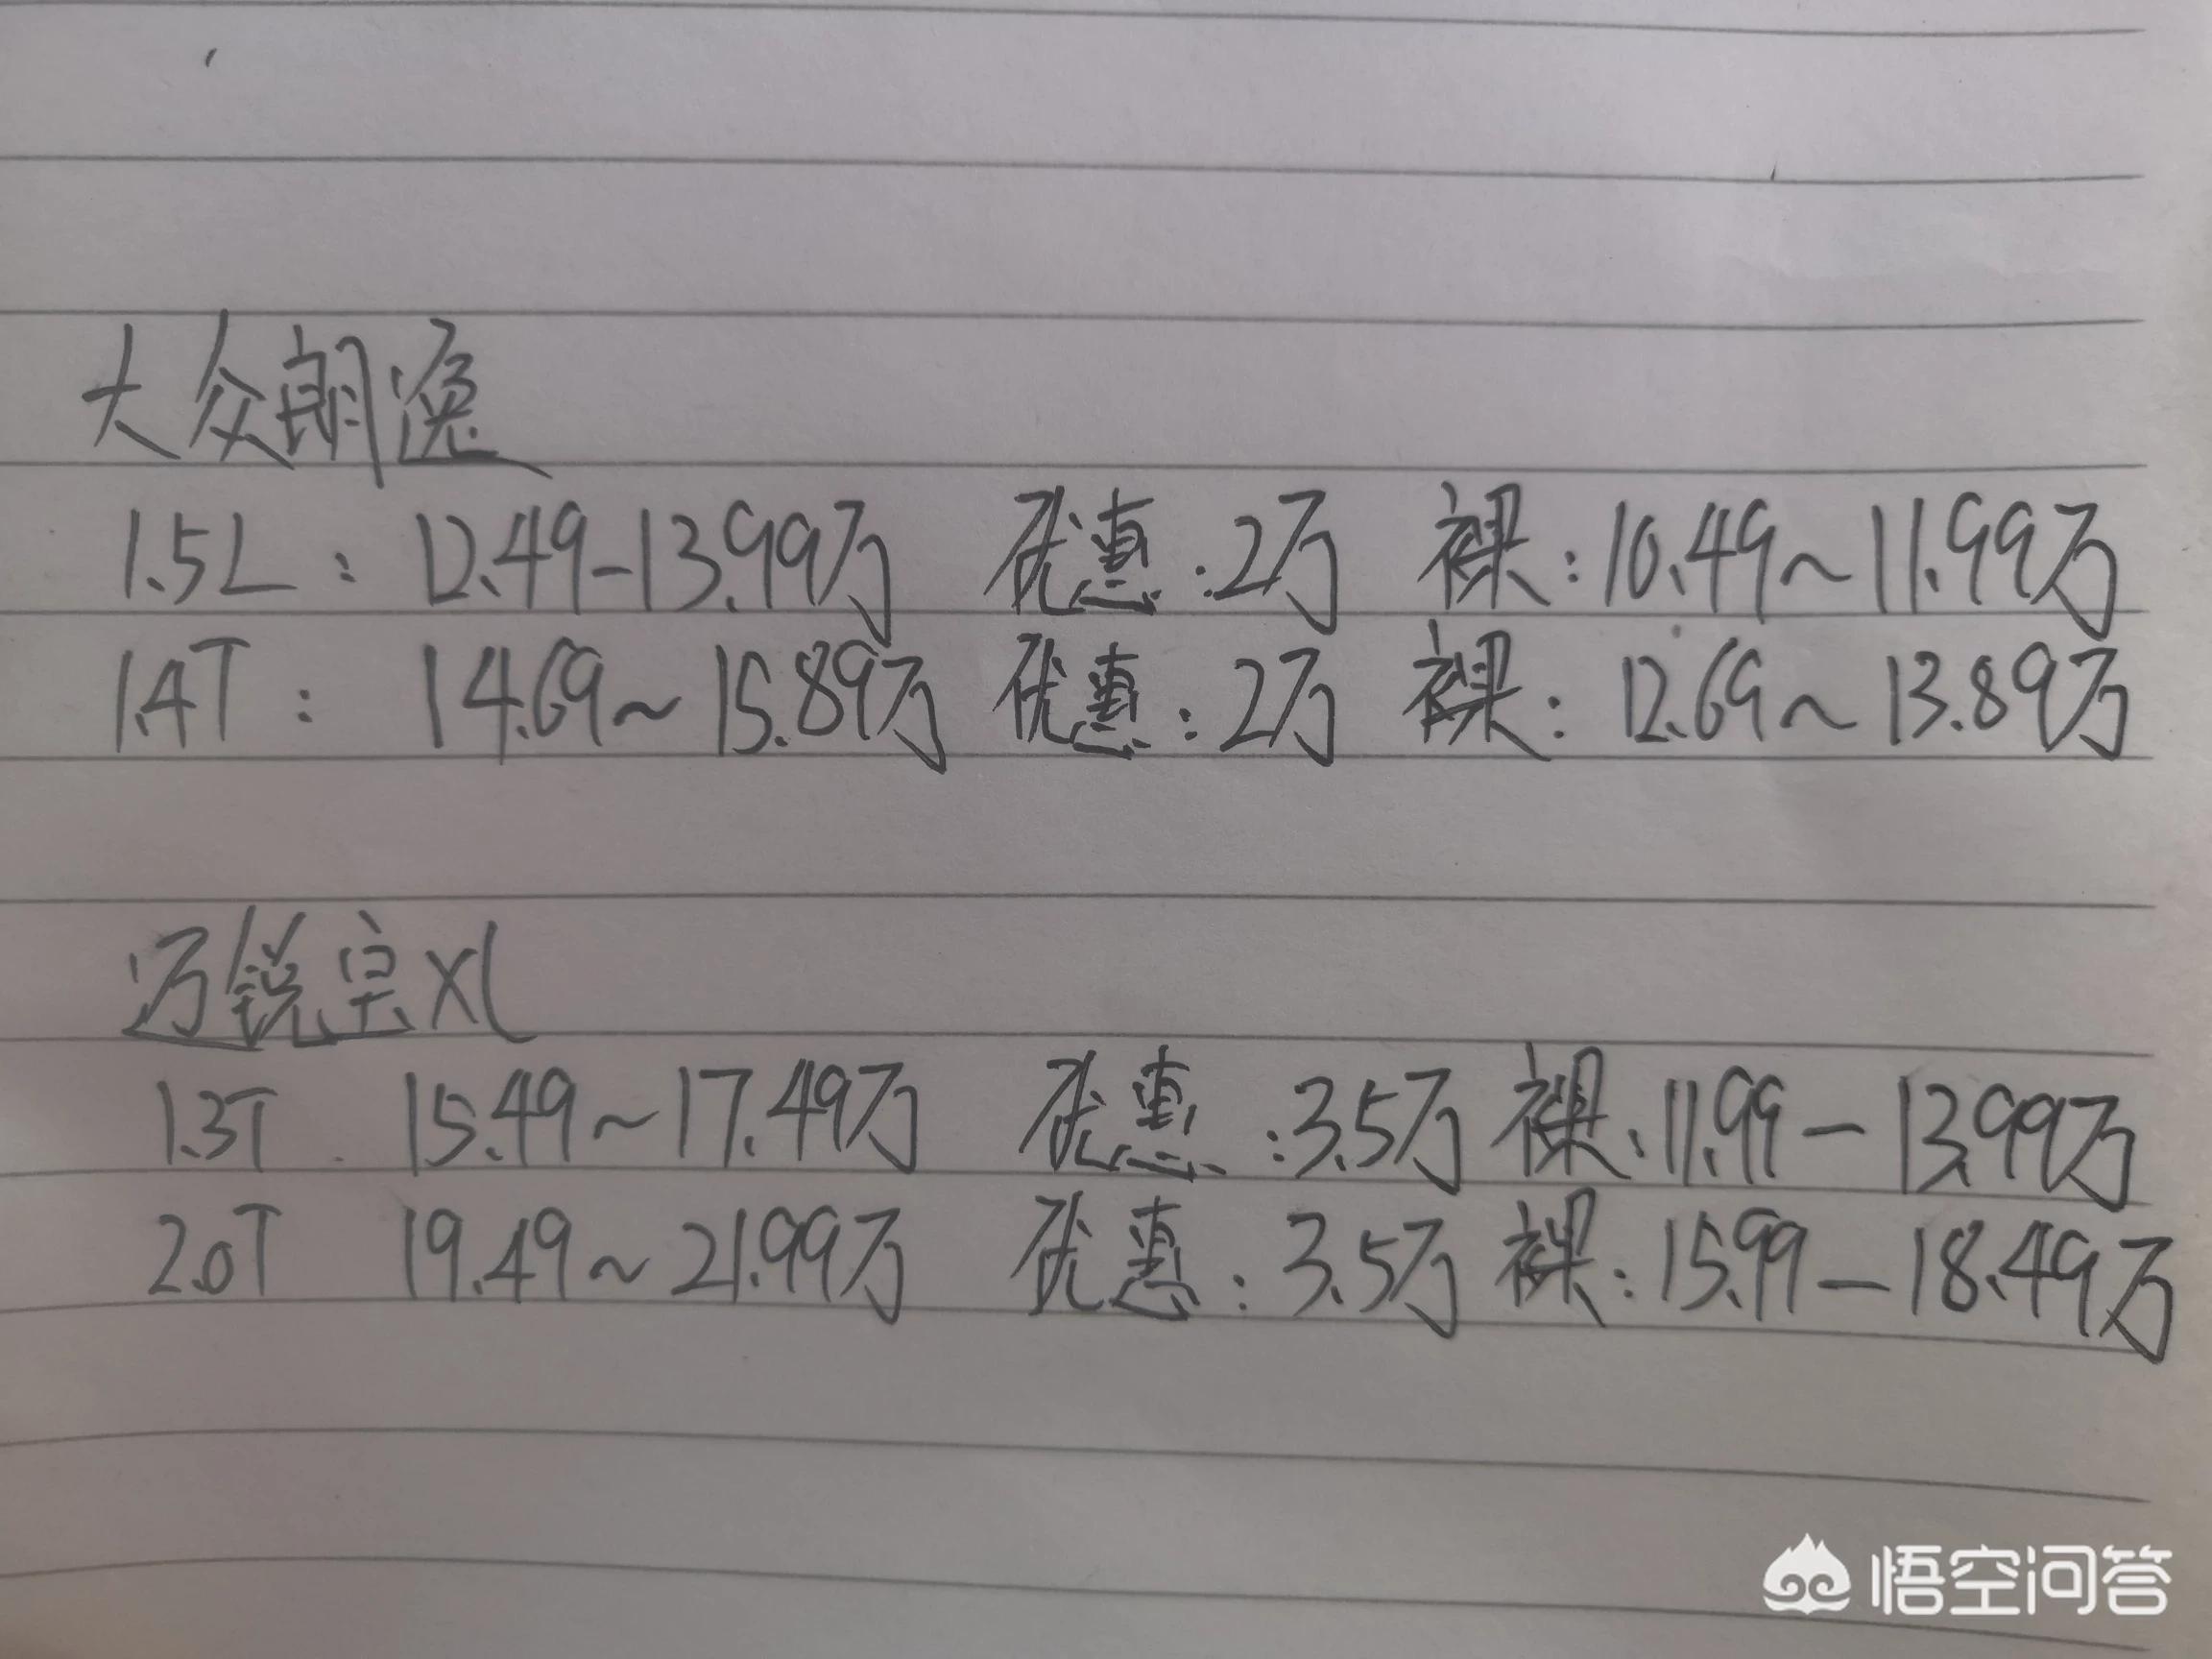 大众朗逸
1.5L: 12.49-13.99万 优惠:2万 裸:10.49~11.99万
1.4T: 14.69~15.89万 优惠:2万 裸:12.69~13.89万
迈锐宝XL
1.3T 15.49~17.49万 优惠:3.5万 裸:11.99-13.99万
2.0T 19.49~21.99万 优惠:3.5万 裸:15.99-18.49万
悟空问答